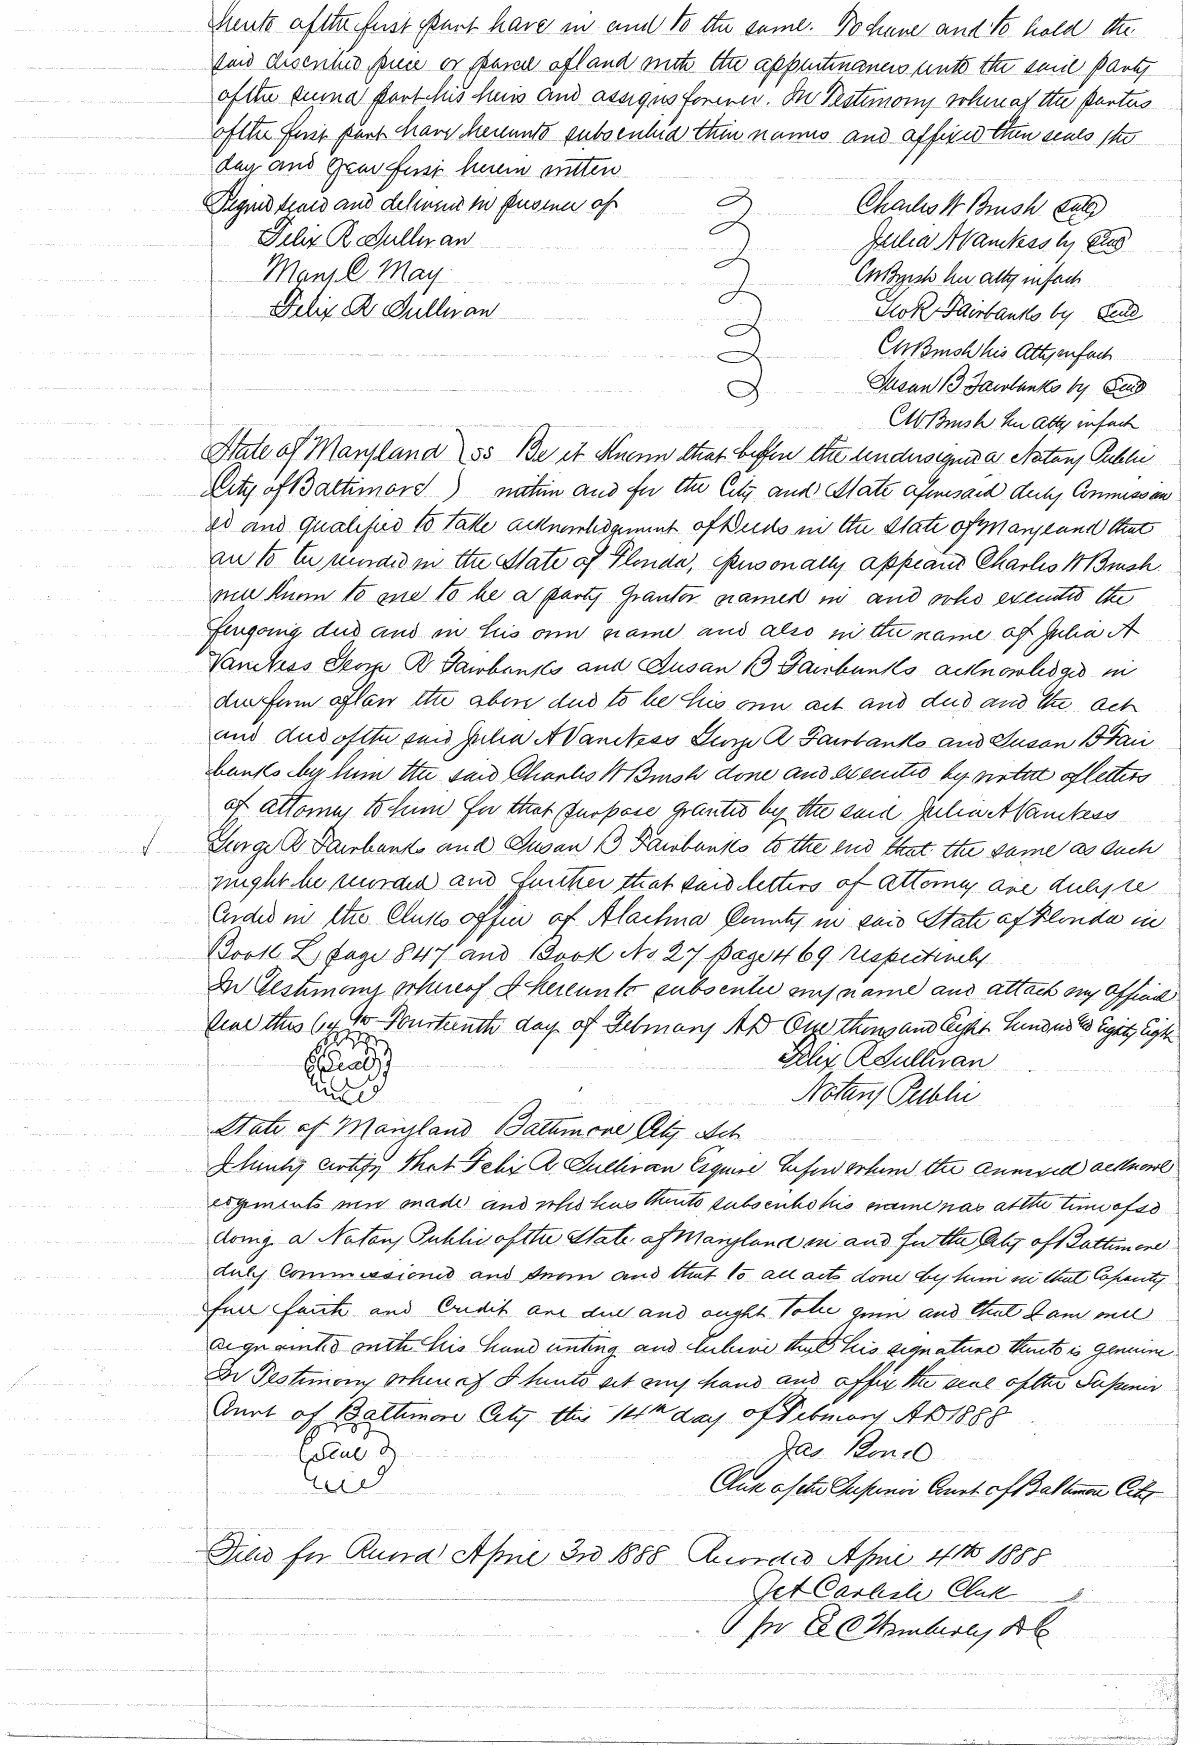 ments of the first part have in and to the same. To have and to hold the
said described piece or parcel of land with the appurtinances unto the said party
of the second part his heirs and assigns forever. In Testimony whereof the parties
of the first part have hereunto subscribed their names and affixed their seals the
day and year first herein written
Signed sealed and delivered in presence of
Charles W Brush Seal
Felix R Sullivan
Julia A VanNess by Seal
Mary C May
CW Brush her atty in fact
Felix R Sullivan
Geo R Fairbanks by Seal
CW Brush his Atty in fact
Susan B Fairbanks by Seal
CW Brush her atty in fact
State of Maryland ) ss Be it Known that before the undersigned a Notary Public
City of Baltimore ) within and for the City and State aforesaid duly Commission
ed and qualified to take acknowledgement of Deeds in the State of Maryland that
are to be recorded in the State of Florida, personally appeared Charles W Brush
well known to me to be a party Grantor named in and who executed the
foregoing deed and in his own name and also in the name of Julia A
VanNess George R Fairbanks and Susan B Fairbanks acknowledged in
due form of law the above deed to be his own act and deed and the act
and deed of the said Julia A VanNess George R Fairbanks and Susan B Fair
banks by him the said Charles W Brush done and executed by virtue of letters
of attorney to him for that purpose granted by the said Julia A VanNess
George R Fairbanks and Susan B Fairbanks to the end that the same as such
might be recorded and further that said letters of attorney are duly re
corded in the Clerks office of Alachua County in said State of Florida in
Book L page 847 and Book No 27 page 469 respectively
In Testimony whereof I hereunto subscribe my name and attach my official
seal this Fourteenth day of February AD One thousand Eight hundred Eighty Eight
Seal
Felix R Sullivan
Notary Public
State of Maryland Baltimore City Sct
I hereby certify that Felix R Sullivan Esquire before whom the annexed acknowl
edgments were made and who has thereto subscribed his name was at the time of so
doing a Notary Public of the State of Maryland in and for the City of Baltimore
duly commissioned and sworn and that to all acts done by him in that Capacity
full faith and Credit are due and ought to be given and that I am well
acquainted with his hand writing and believe that his signature thereto is genuine
In Testimony whereof I hereto set my hand and affix the seal of the Superior
Court of Baltimore City this 14th day of February AD 1888
Seal
Jas Bond
Clerk of the Superior Court of Baltimore City
Filed for Record April 3rd 1888 Recorded April 4th 1888
Carlisle Clerk
pr E C Wimberley DC